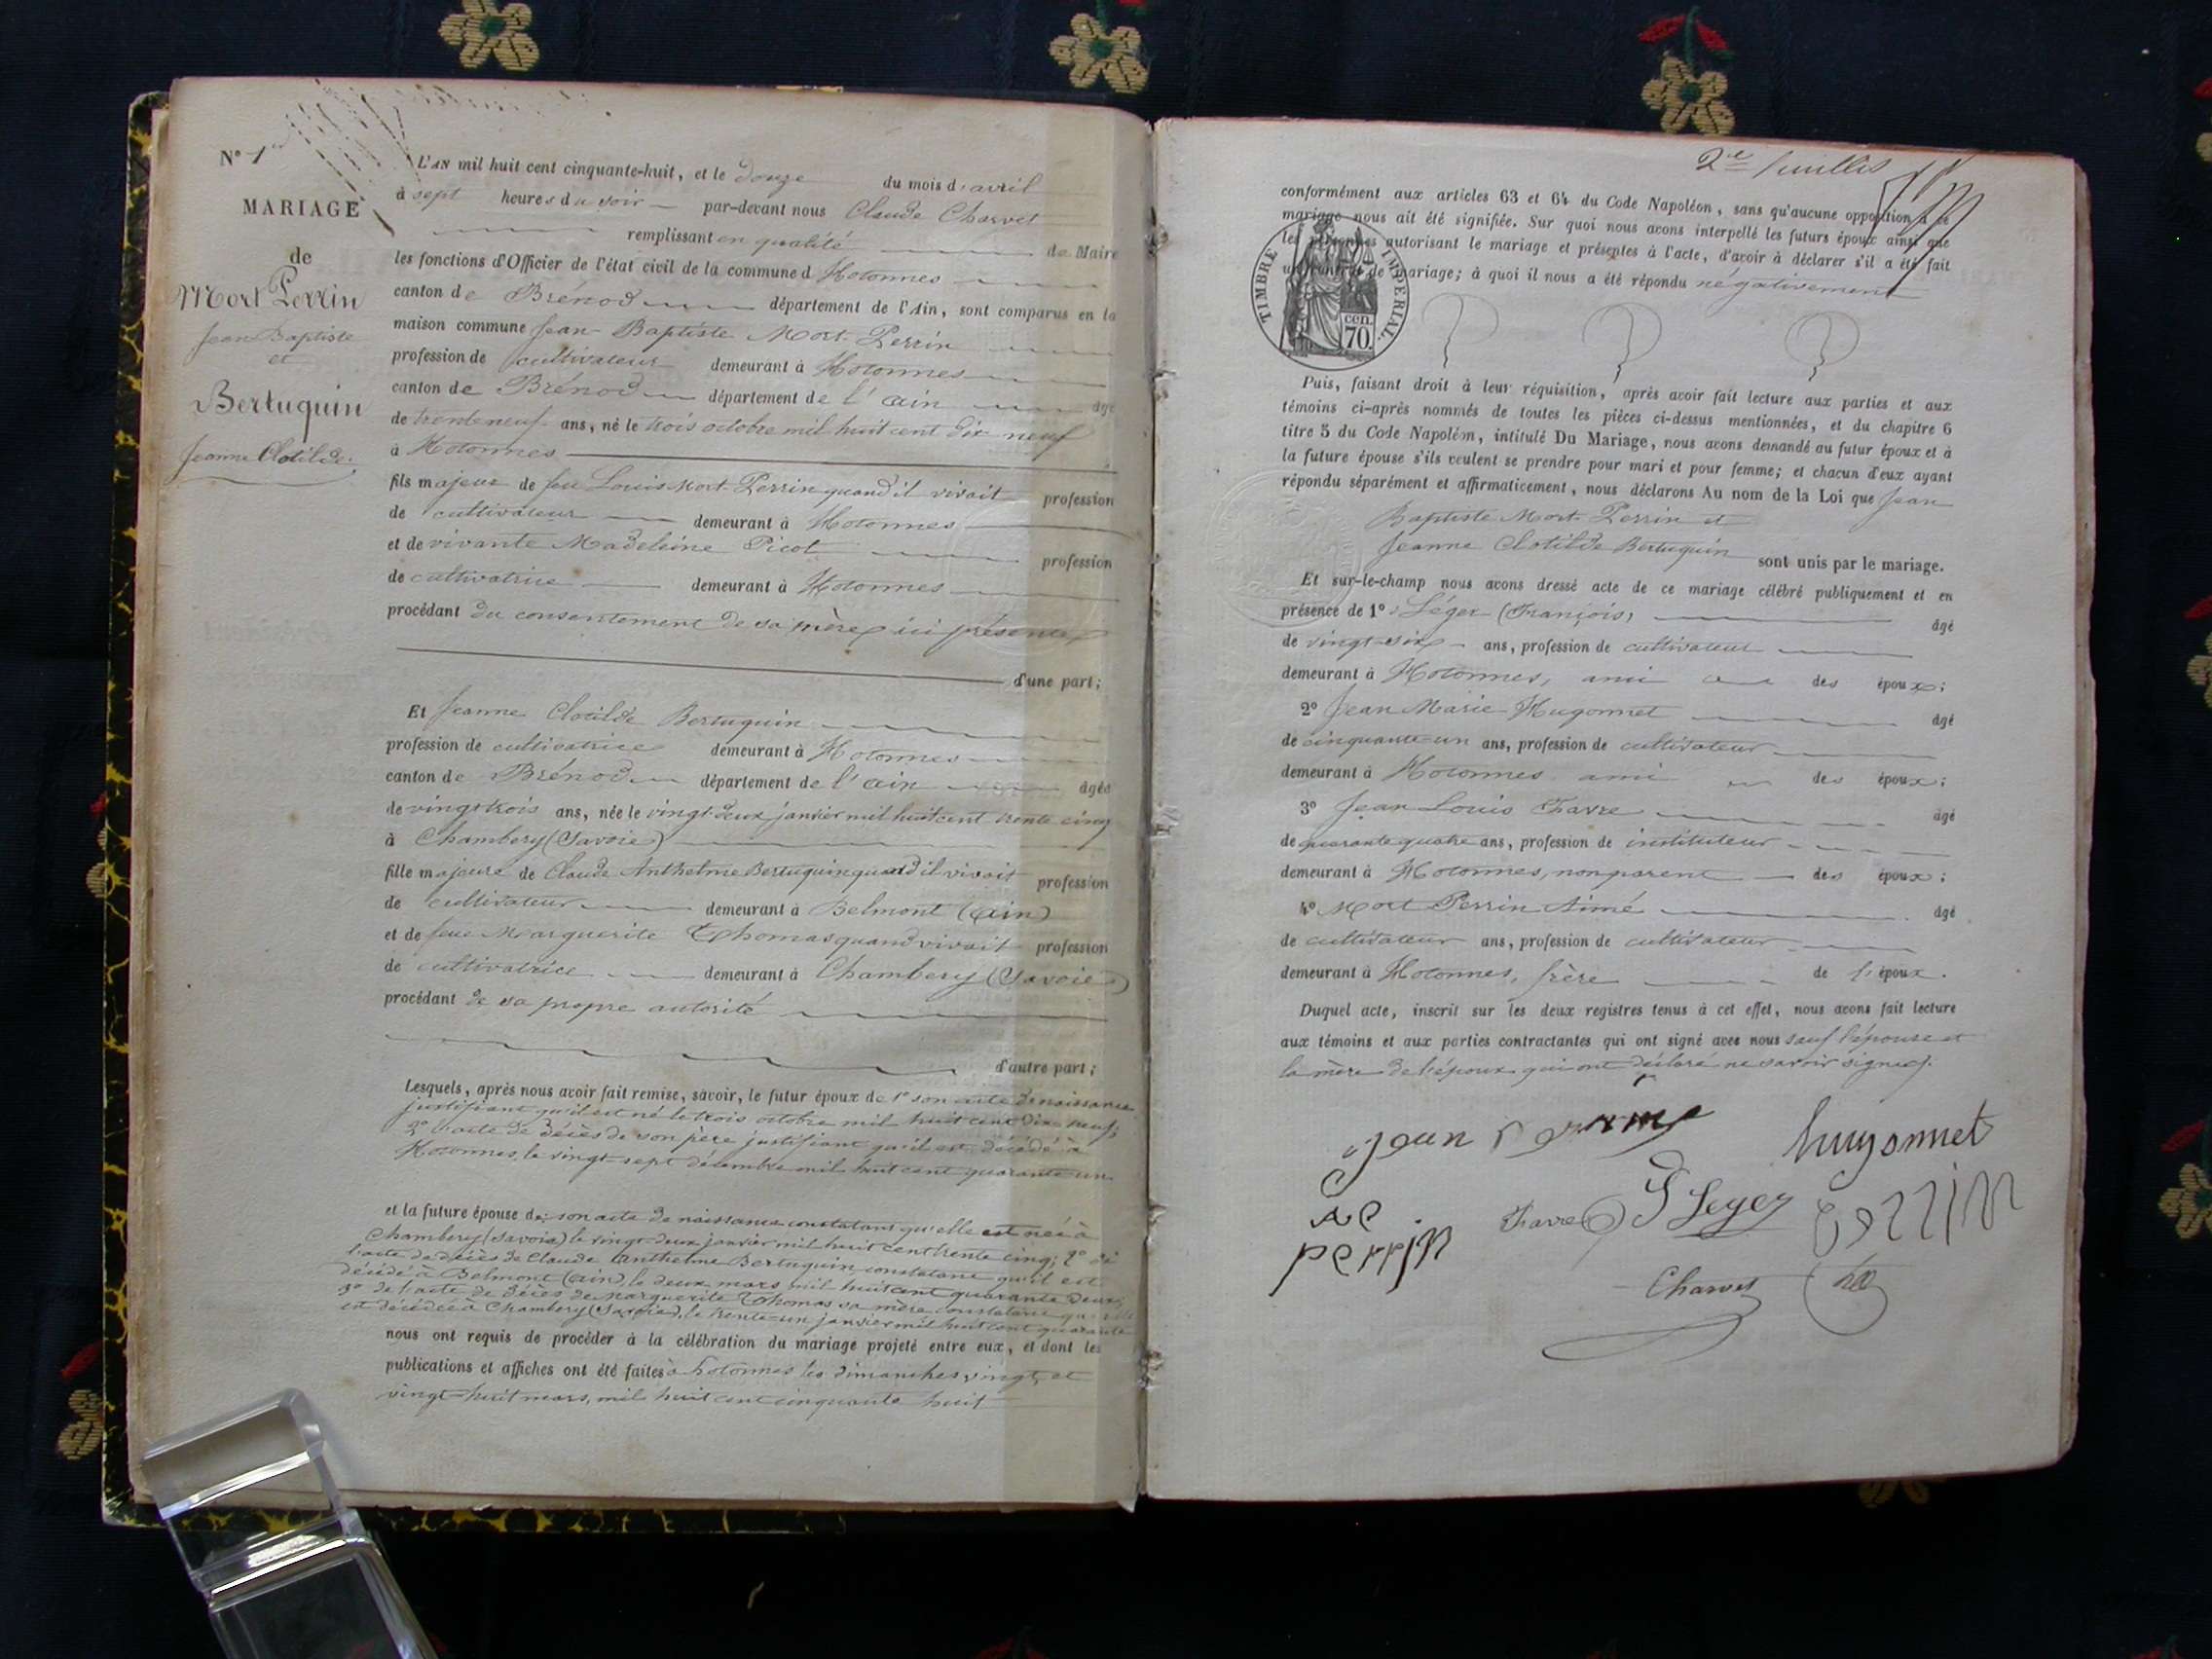 N° 1er
MARIAGE
de
Mort Perrin
Jean Baptiste
et
Bertuquin
Jeanne Clotilde.
L'AN mil huit cent cinquante-huit, et le douze du mois d'avril
à sept heures du soir par-devant nous Claude Charvet
remplissant en qualité de Maire
les fonctions d'Officier de l'état civil de la commune d Hotonnes
canton de Brénod département de l'Ain, sont comparus en la
maison commune Jean Baptiste Mort Perrin
profession de cultivateur demeurant à Hotonnes
canton de Brénod département de l'ain agé
de trente neuf ans, né le trois octobre mil huit cent dix neuf
à Hotonnes
fils majeur de feu Louis Mort Perrin quand il vivait profession
de cultivateur demeurant à Hotonnes
et de vivante Madeleine Picot profession
de cultivatrice demeurant à Hotonnes
procédant du consentement de sa mère ici présente
d'une part;
Et Jeanne Clotilde Bertuquin
profession de cultivatrice demeurant à Hotonnes
canton de Brénod département de l'ain agée
de vingt trois ans, née le vingt deux janvier mil huit cent trente cinq
à Chambery (Savoie)
fille majeure de Claude Anthelme Bertuquin quand il vivait profession
de cultivateur demeurant à Belmont (ain)
et de feue Marguerite Thomas quand vivait profession
de cultivatrice demeurant à Chambery (Savoie)
procédant de sa propre autorité
d'autre part;
Lesquels, après nous avoir fait remise, savoir, le futur époux de 1° son acte de naissance
justifiant qu'il est né le trois octobre mil huit cent dix neuf;
2° l'acte de décès de son père justifiant qu'il est décédé à
Hotonnes, le vingt sept décembre mil huit cent quarante un
et la future épouse de son acte de naissance constatant qu'elle est née à
Chambery (Savoie) le vingt deux janvier mil huit cent trente cinq; 2° de
l'acte de décès de Claude Anthelme Bertuquin constatant qu'il est
décédé à Belmont (ain), le deux mars mil huit cent quarante deux;
3° de l'acte de décès de Marguerite Thomas sa mère constatant qu'elle
est décédée à Chambery (Savoie), le trente un janvier mil huit cent quarante
nous ont requis de procéder à la célébration du mariage projeté entre eux, et dont les
publications et affiches ont été faites à hotonnes les dimanches vingt et
vingt-huit mars, mil huit cent cinquante huit
2e feuillet
conformément aux articles 63 et 64 du Code Napoléon, sans qu'aucune opposition à ce
mariage nous ait été signifiée. Sur quoi nous avons interpellé les futurs époux ainsi que
les personnes autorisant le mariage et présentes à l'acte, d'avoir à déclarer s'il a été fait
un contrat de mariage; à quoi il nous a été répondu négativement
TIMBRE IMPERIAL.
cen.
70.
Puis, faisant droit à leur réquisition, après avoir fait lecture aux parties et aux
témoins ci-après nommés de toutes les pièces ci-dessus mentionnées, et du chapitre 6
titre 5 du Code Napoléon, intitulé Du Mariage, nous avons demandé au futur époux et à
la future épouse s'ils veulent se prendre pour mari et pour femme; et chacun d'eux ayant
répondu séparément et affirmativement, nous déclarons Au nom de la Loi que Jean
Baptiste Mort Perrin et
Jeanne Clotilde Bertuquin sont unis par le mariage.
Et sur-le-champ nous avons dressé acte de ce mariage célébré publiquement et en
présence de 1° Léger (François) âgé
de vingt-six ans, profession de cultivateur
demeurant à Hotonnes, ami des époux;
2° Jean Marie Hugonnet âgé
de cinquante un ans, profession de cultivateur
demeurant à Hotonnes ami des époux;
3° Jean Louis Favre âgé
de quarante quatre ans, profession de instituteur
demeurant à Hotonnes, non parent des époux;
4° Mort Perrin Aimé âgé
de cultivateur ans, profession de cultivateur
demeurant à Hotonnes, frère de l'époux.
Duquel acte, inscrit sur les deux registres tenus à cet effet, nous avons fait lecture
aux témoins et aux parties contractantes qui ont signé avec nous sauf l'épouse et
la mère de l'époux qui ont déclaré ne savoir signer.
Jean
hugonnet
Favre
Leger
perrin
Charvet